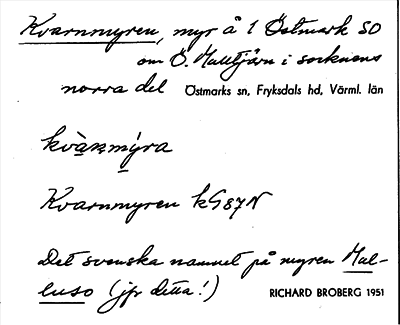 Kvarnmyren, myr å 1 Östmark SO
om Ö. Mulltjärn i socknens
norra del Östmarks sn, Fryksdals hd, Värml. län
kvàɳmýra
Kvarnmyren kG87N
Det svenska namnet på myren Mul-
luso (jfr detta!) RICHARD BROBERG 1951